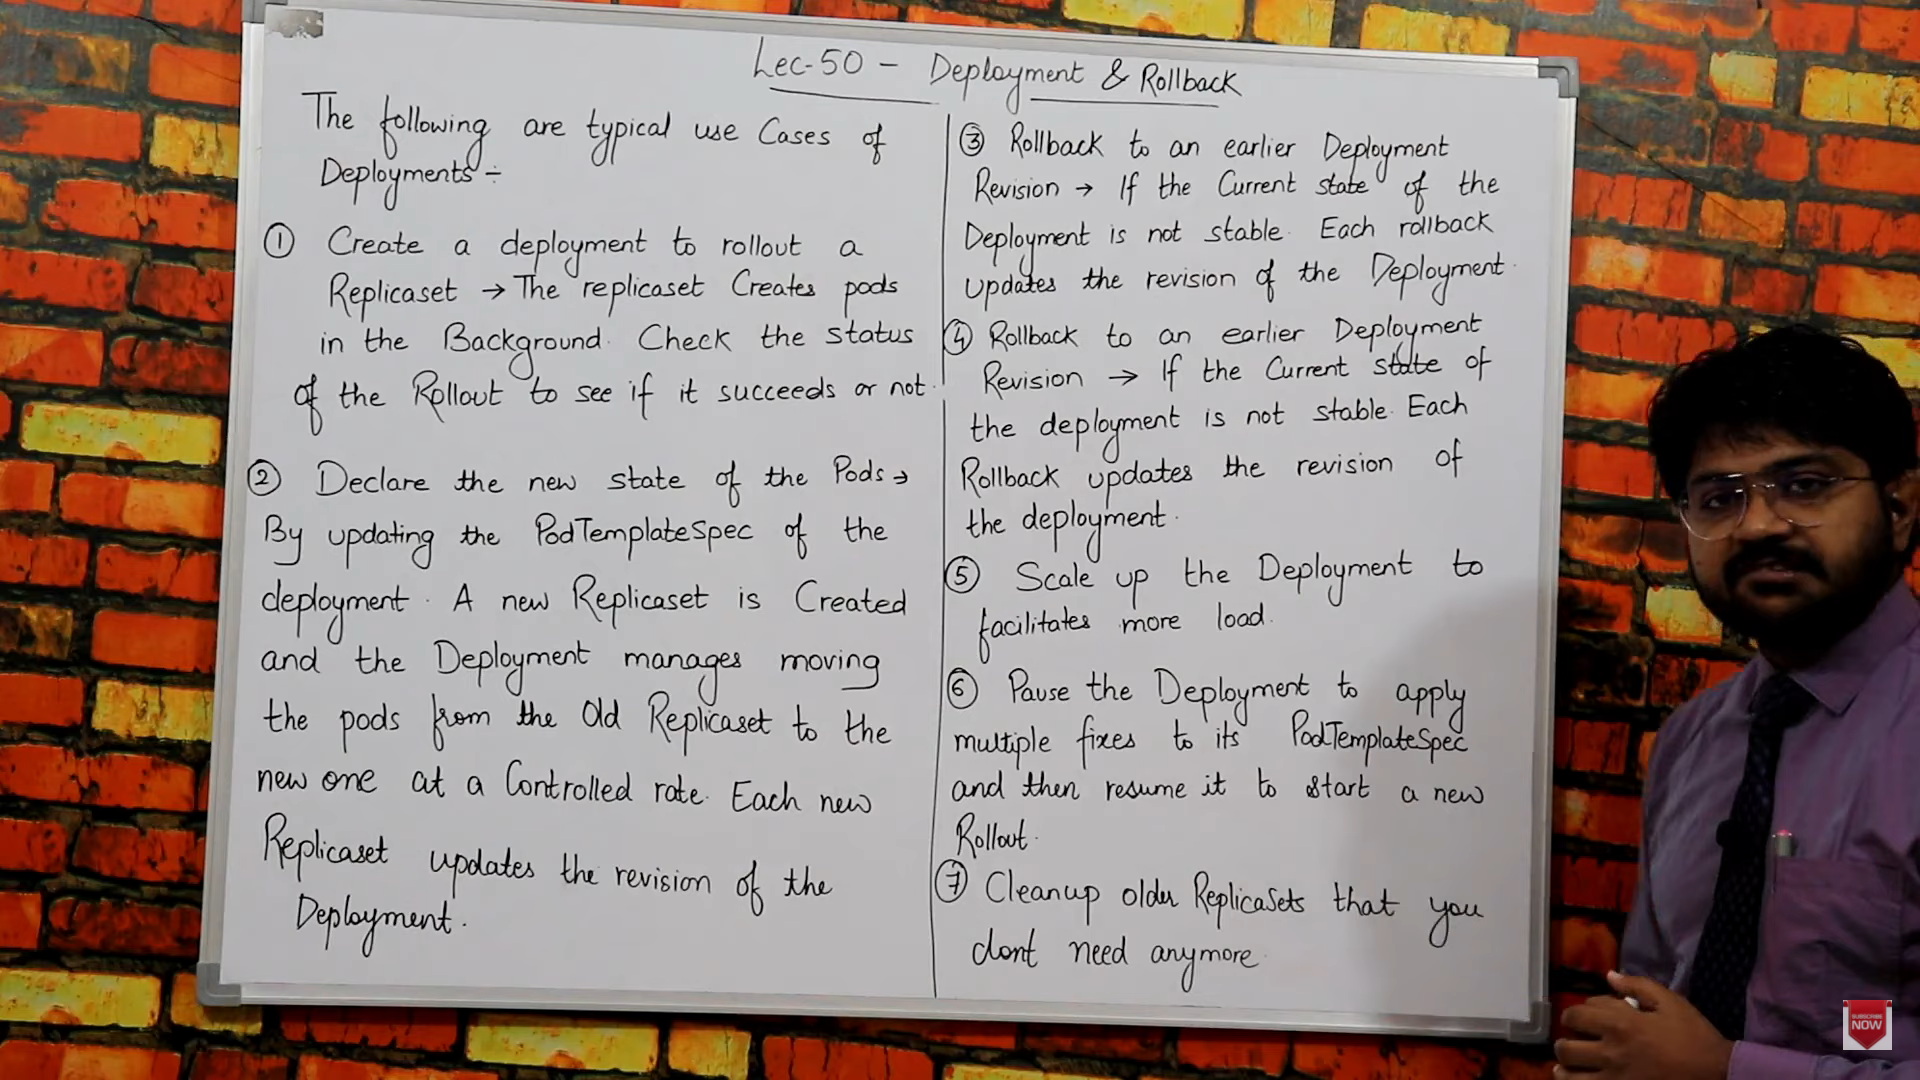 Lec-50 - Deployment & Rollback
The following are typical use Cases of
Deployments :-
① Create a deployment to rollout a
Replicaset → The replicaset Creates pods
in the Background. Check the status
of the Rollout to see if it succeeds or not.
② Declare the new state of the Pods →
By updating the PodTemplateSpec of the
deployment. A new Replicaset is Created
and the Deployment manages moving
the pods from the Old Replicaset to the
new one at a Controlled rate. Each new
Replicaset updates the revision of the
Deployment.
③ Rollback to an earlier Deployment
Revision → If the Current state of the
Deployment is not stable. Each rollback
updates the revision of the Deployment.
④ Rollback to an earlier Deployment
Revision → If the Current state of
the deployment is not stable. Each
Rollback updates the revision of
the deployment.
⑤ Scale up the Deployment to
facilitates more load.
⑥ Pause the Deployment to apply
multiple fixes to its PodTemplateSpec
and then resume it to start a new
Rollout.
⑦ Cleanup older ReplicaSets that you
dont need anymore.
SUBSCRIBE
NOW